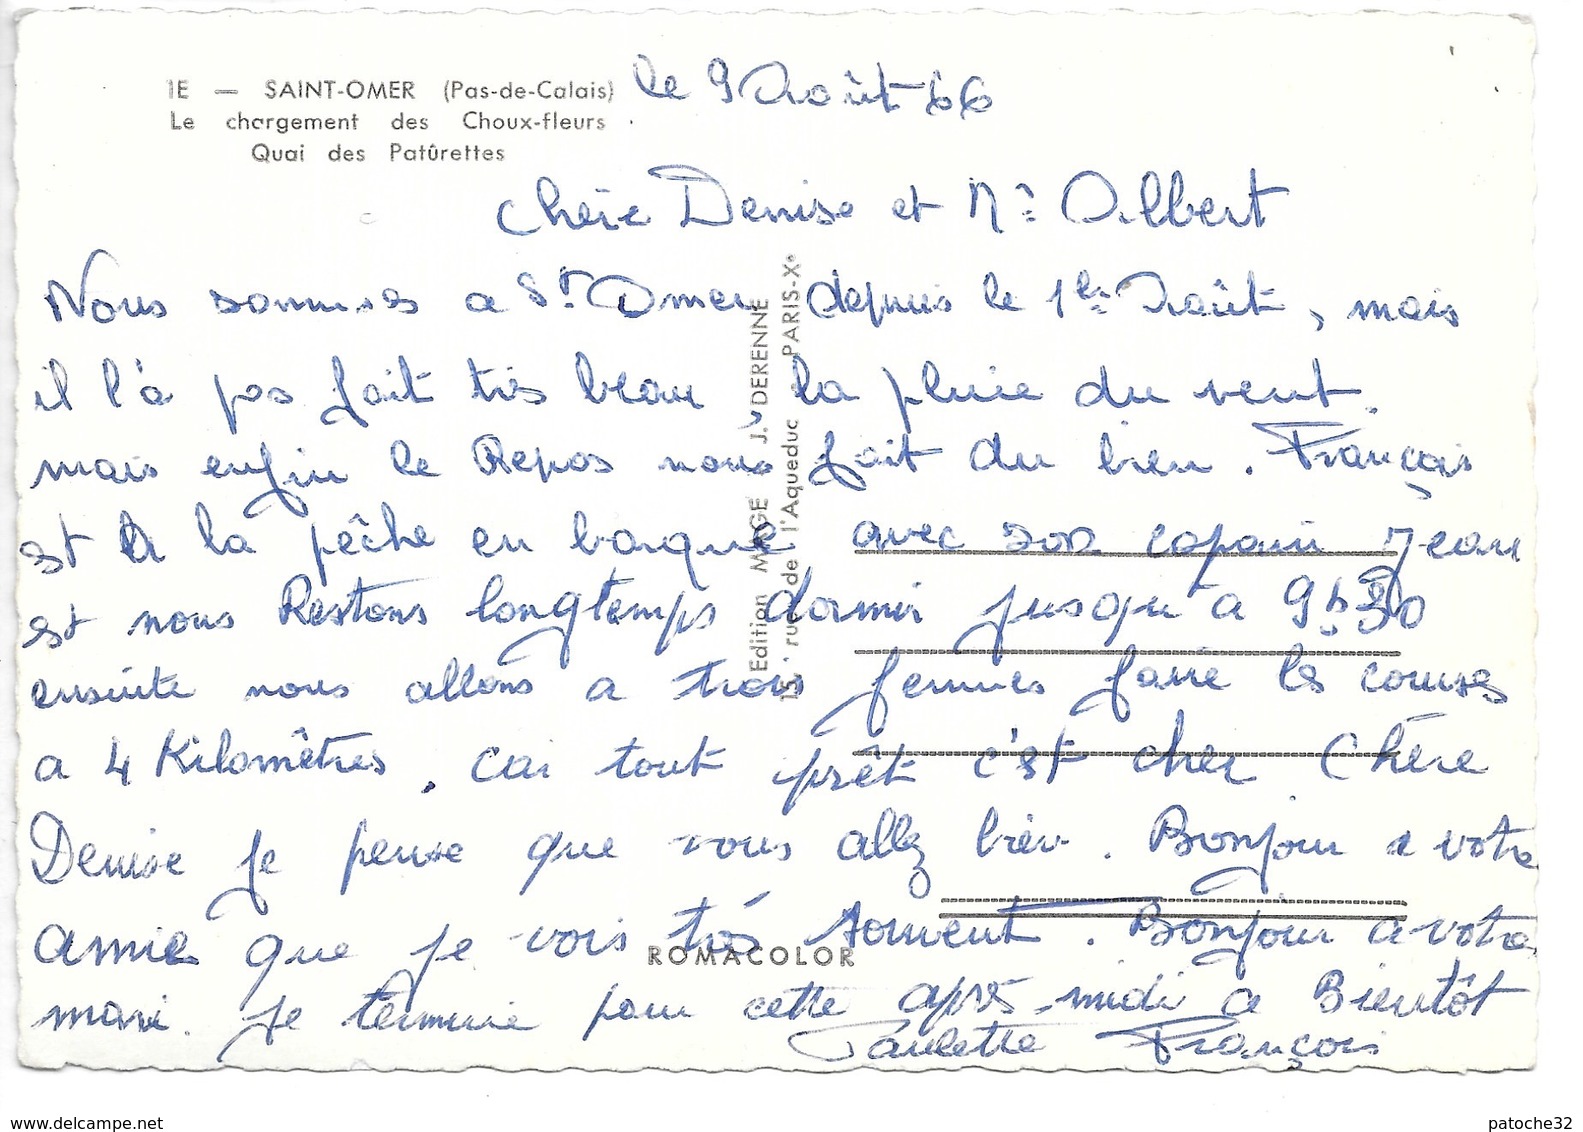 1E — SAINT-OMER (Pas-de-Calais)
Le chargement des Choux-fleurs
Quai des Patûrettes
le 9 Août 66
Chère Denise et Mr Albert
Nous sommes a St Omer depuis le 1er Août, mais
il l'a pas fait très beau, la pluie du vent.
mais enfin le Repos nous fait du bien. François
est a la pêche en barque avec son copain Jean
et nous Restons longtemps dormir jusqu'a 9h30
ensuite nous allons a trois femmes faire les courses
a 4 Kilomètres. car tout prêt c'est cher Chère
Denise je pense que vous allez bien. Bonjour a votre
amie que je vois très souvent. Bonjour a votre
mari. Je termine pour cette après-midi a Bientôt
Paulette François
Edition MAGE J. DERENNE
15, rue de l'Aqueduc PARIS-Xe
ROMACOLOR
www.delcampe.net
patoche32